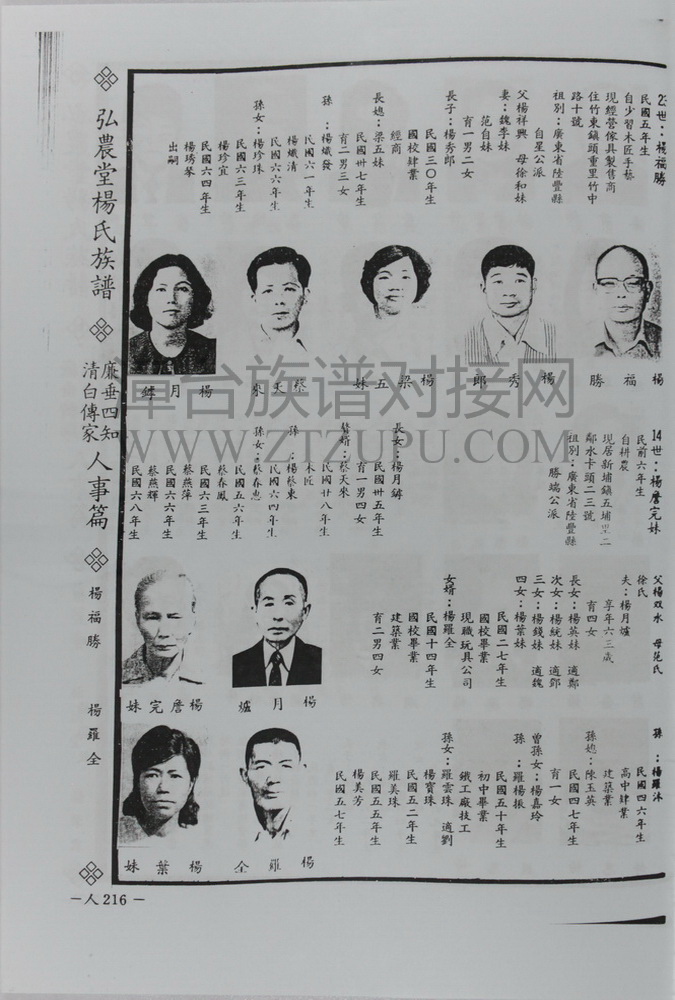 23世：楊福勝
民國五年生
自少習木匠手藝
現經營傢具製售商
住竹東鎮頭重里竹中
路十號
祖別：廣東省陸豐縣
自星公派
父楊祥興　母徐和妹
妻：魏李妹
范自妹
育一男二女
長子：楊秀郎
民國三○年生
國校肄業
經商
長媳：梁五妹
民國卅七年生
育二男三女
孫：楊熾發
民國六一年生
楊熾清
民國六六年生
孫女：楊珍珠
民國六三年生
楊珍宜
民國六四年生
楊琇琴
出嗣
楊福勝
楊秀郎
楊梁五妹
蔡天來
楊月
14世：楊詹完妹
民前六年生
自耕農
現居新埔鎮五埔里二
鄰水卡頭二三號
祖別：廣東省陸豐縣
勝端公派
父楊双水　母范氏
徐氏
夫：楊月爐
享年六三歲
育四女
長女：楊英妹　適鄭
次女：楊統妹　適鄧
三女：楊錢妹　適魏
四女：楊葉妹
民國二七年生
國校畢業
現職玩具公司
女婿：楊羅全
民國十四年生
國校畢業
建築業
育二男四女
孫：楊羅沐
民國四六年生
高中肄業
建築業
孫媳：陳玉英
民國四七年生
育一女
曾孫女：楊嘉玲
孫：羅楊振
民國五十年生
初中畢業
鐵工廠技工
孫女：羅雲珠　適劉
楊寶珠
民國五二年生
羅美珠
民國五五年生
楊美芳
民國五七年生
長女：楊月
民國卅五年生
育一男四女
贅婿：蔡天來
民國廿八年生
木匠
孫：楊蔡東
民國六四年生
孫女：蔡春惠
民國五六年生
蔡春鳳
民國六三年生
蔡燕萍
民國六六年生
蔡燕輝
民國六八年生
楊月爐
楊詹完妹
楊羅全
楊葉妹
弘農堂楊氏族譜
廉垂四知
清白傳家
人事篇
楊福勝
楊羅全
—人216—
台族谱对接网
WWW.ZTZUPU.COM